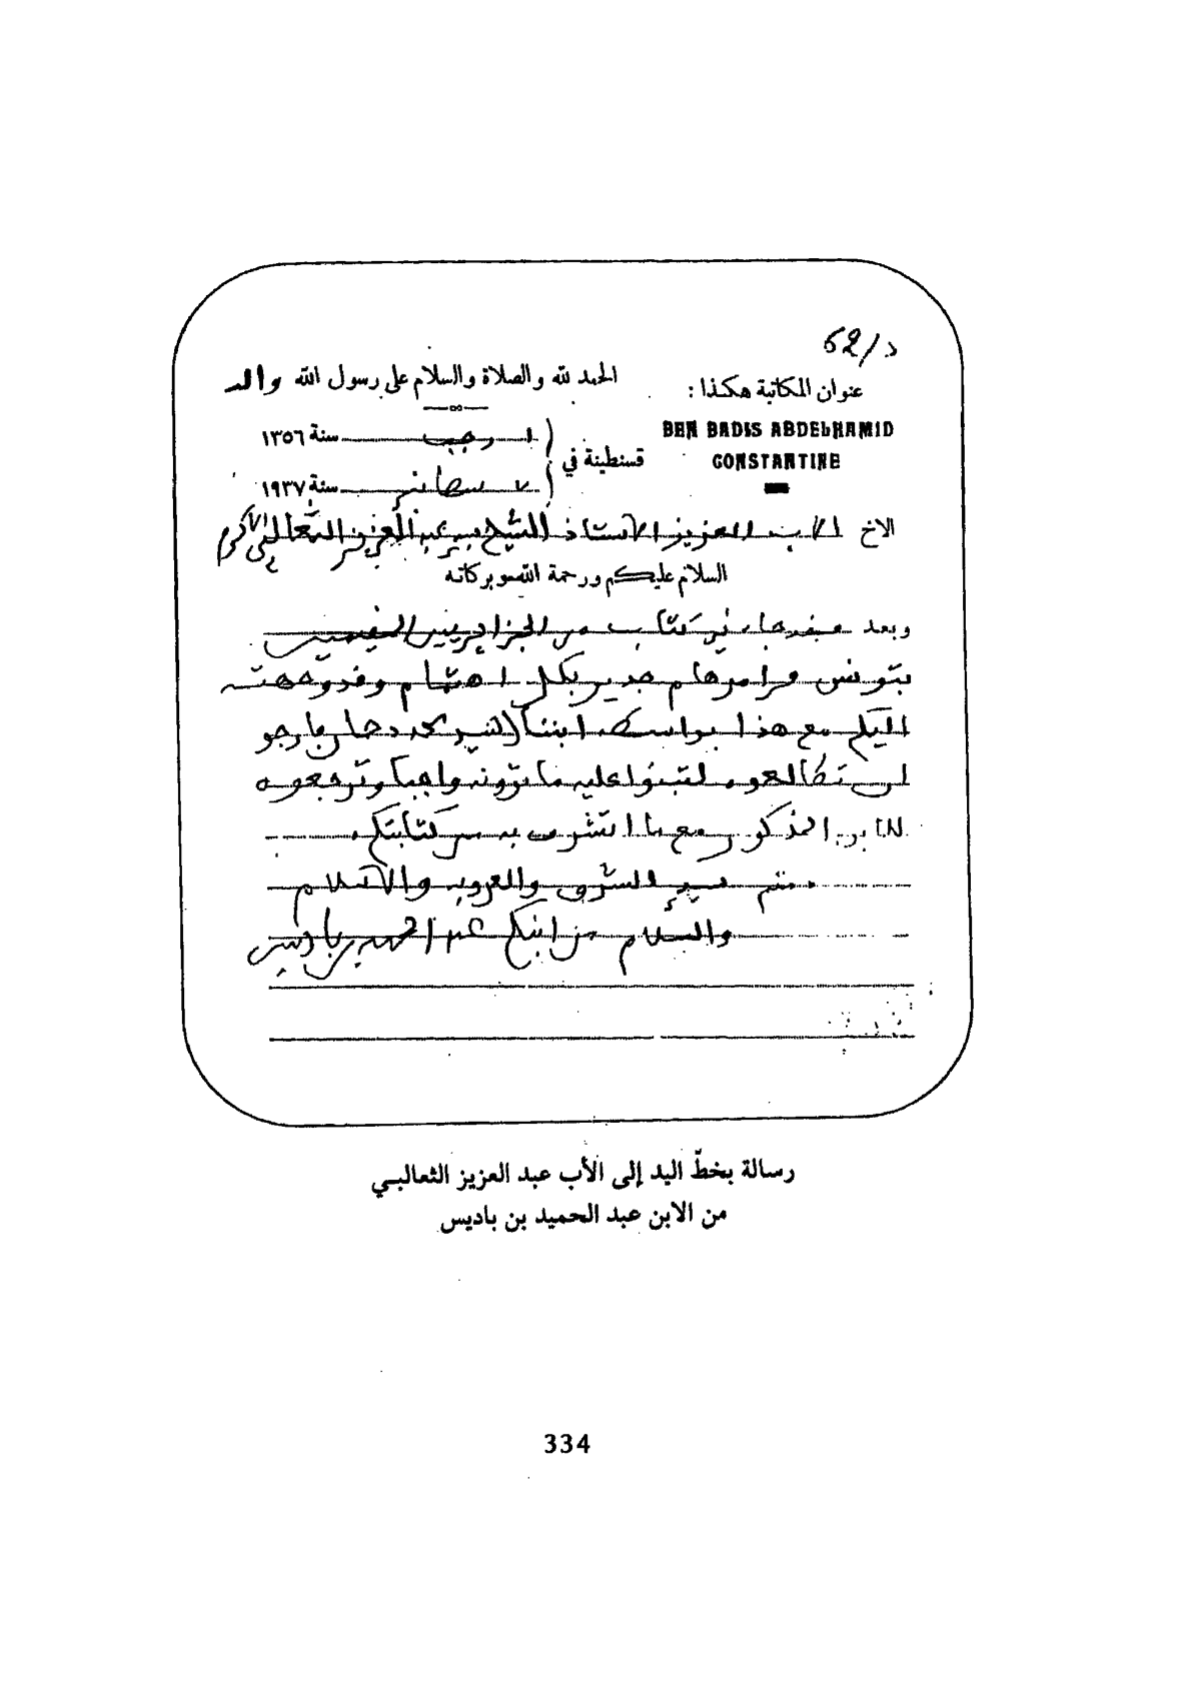 د/62
الحمد لله والصلاة والسلام على رسول الله وآله
عنوان المكاتبة هكذا :
BEN BADIS ABDELHAMID
CONSTANTINE
قسنطينة في
رجب سنة ١٣٥٦
٧ سنة ١٩٣٧
الاخ الأب العزيز الأستاذ الشيخ سيدي عبد العزيز الثعالبي الأكرم
السلام عليكم ورحمة الله وبركاته
وبعد فقد جاءني كتاب من الجزائريين المقيمين
بتونس في أمر هام جدير بكل اهتمام وقد وجهته
إليكم مع هذا بواسطة ابننا الشيخ أرجو
أن تطالعوه لتنبؤا عليه ما ترونه واجبا وترجعوه
للابن المذكور مع ما أتشرف به من كتابتكم
دمتم للشرق والعروبة والإسلام
والسلام من ابنكم عبد الحميد بن باديس
رسالة بخطّ اليد إلى الأب عبد العزيز الثعالبي
من الابن عبد الحميد بن باديس
334